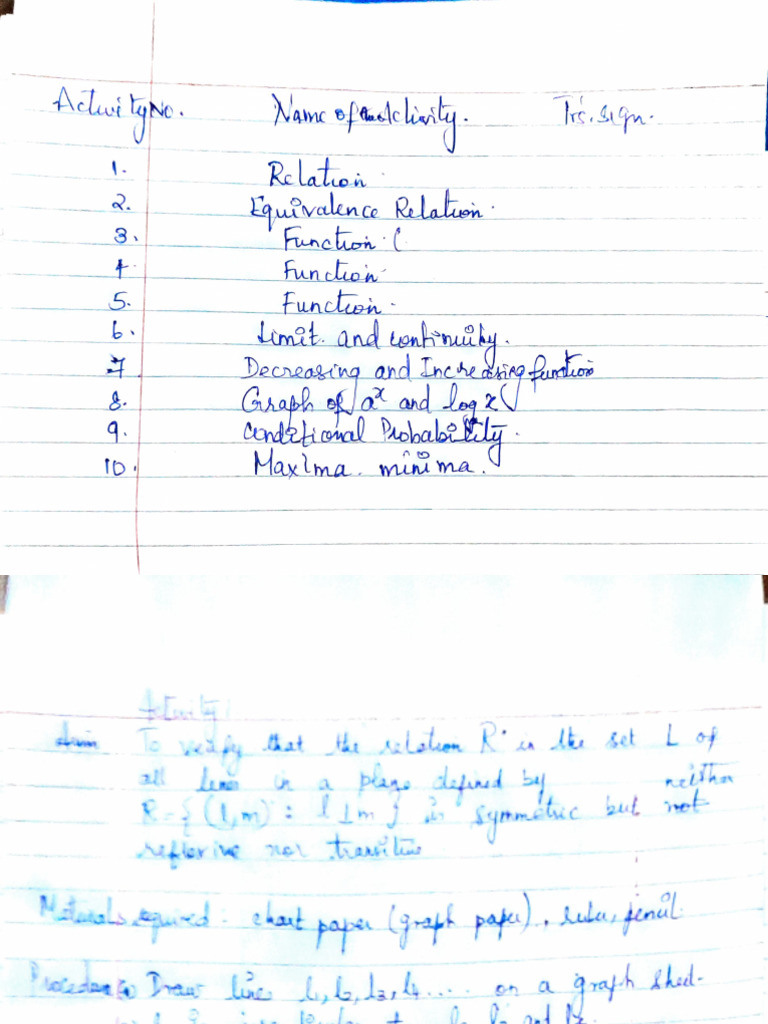 Activity No. Name of the Activity. Tr's. sign.
1. Relation.
2. Equivalence Relation.
3. Function (
4. Function
5. Function.
6. Limit and continuity.
7 Decreasing and Increasing function
8. Graph of a^x and log x
9. Conditional Probability.
10. Maxima minima.
Activity
Aim To verify that the relation R in the set L of
all lines in a plane defined by neither
R = { (l, m) : l ⊥ m } is symmetric but not
reflexive nor transitive
Materials required: chart paper (graph paper), ruler, pencil
Procedure Draw line l1, l2, l3, l4 .... on a graph sheet-
and